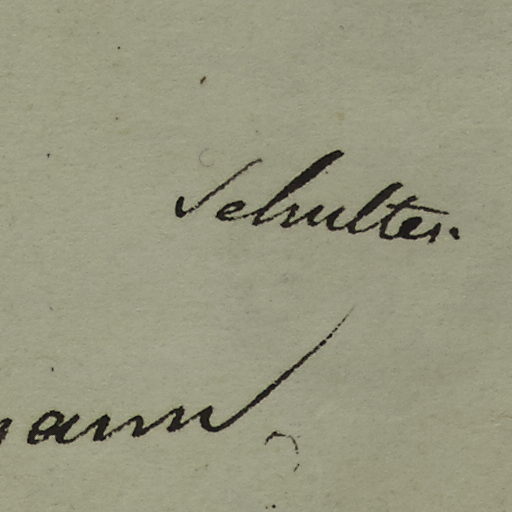 Schulter.
mann